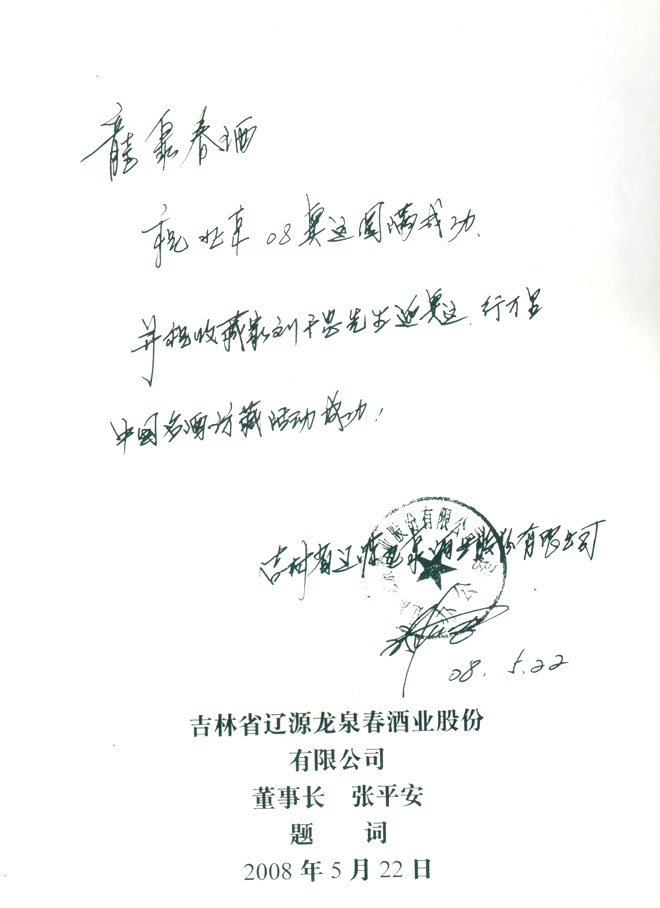 龍泉春酒
祝北京08奥运圆满成功.
并祝收藏家刘干忠先生迎奥运.行万里
中国名酒访藏活动成功!
股份有限公
吉林省辽源龙泉酒业股份有限公司
08.5.22
吉林省辽源龙泉春酒业股份
有限公司
董事长 张平安
题 词
2008年5月22日